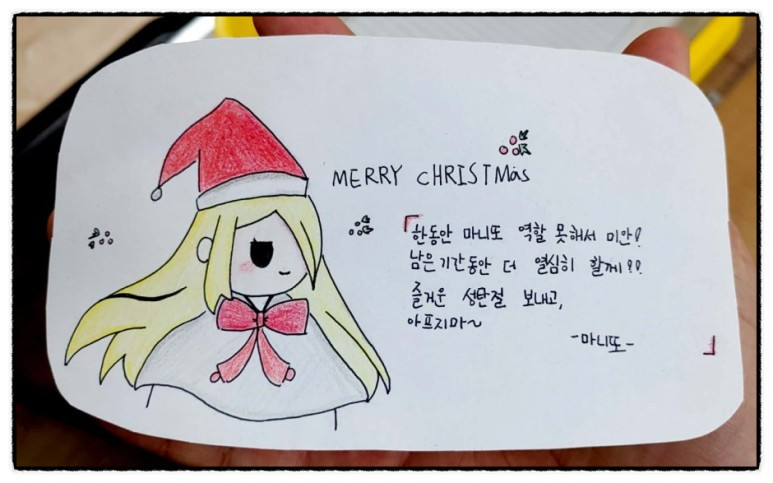 MERRY CHRISTMas
「한동안 마니또 역할 못해서 미안!
남은기간동안 더 열심히 할께!!
즐거운 성탄절 보내고,
아프지마~
-마니또-」